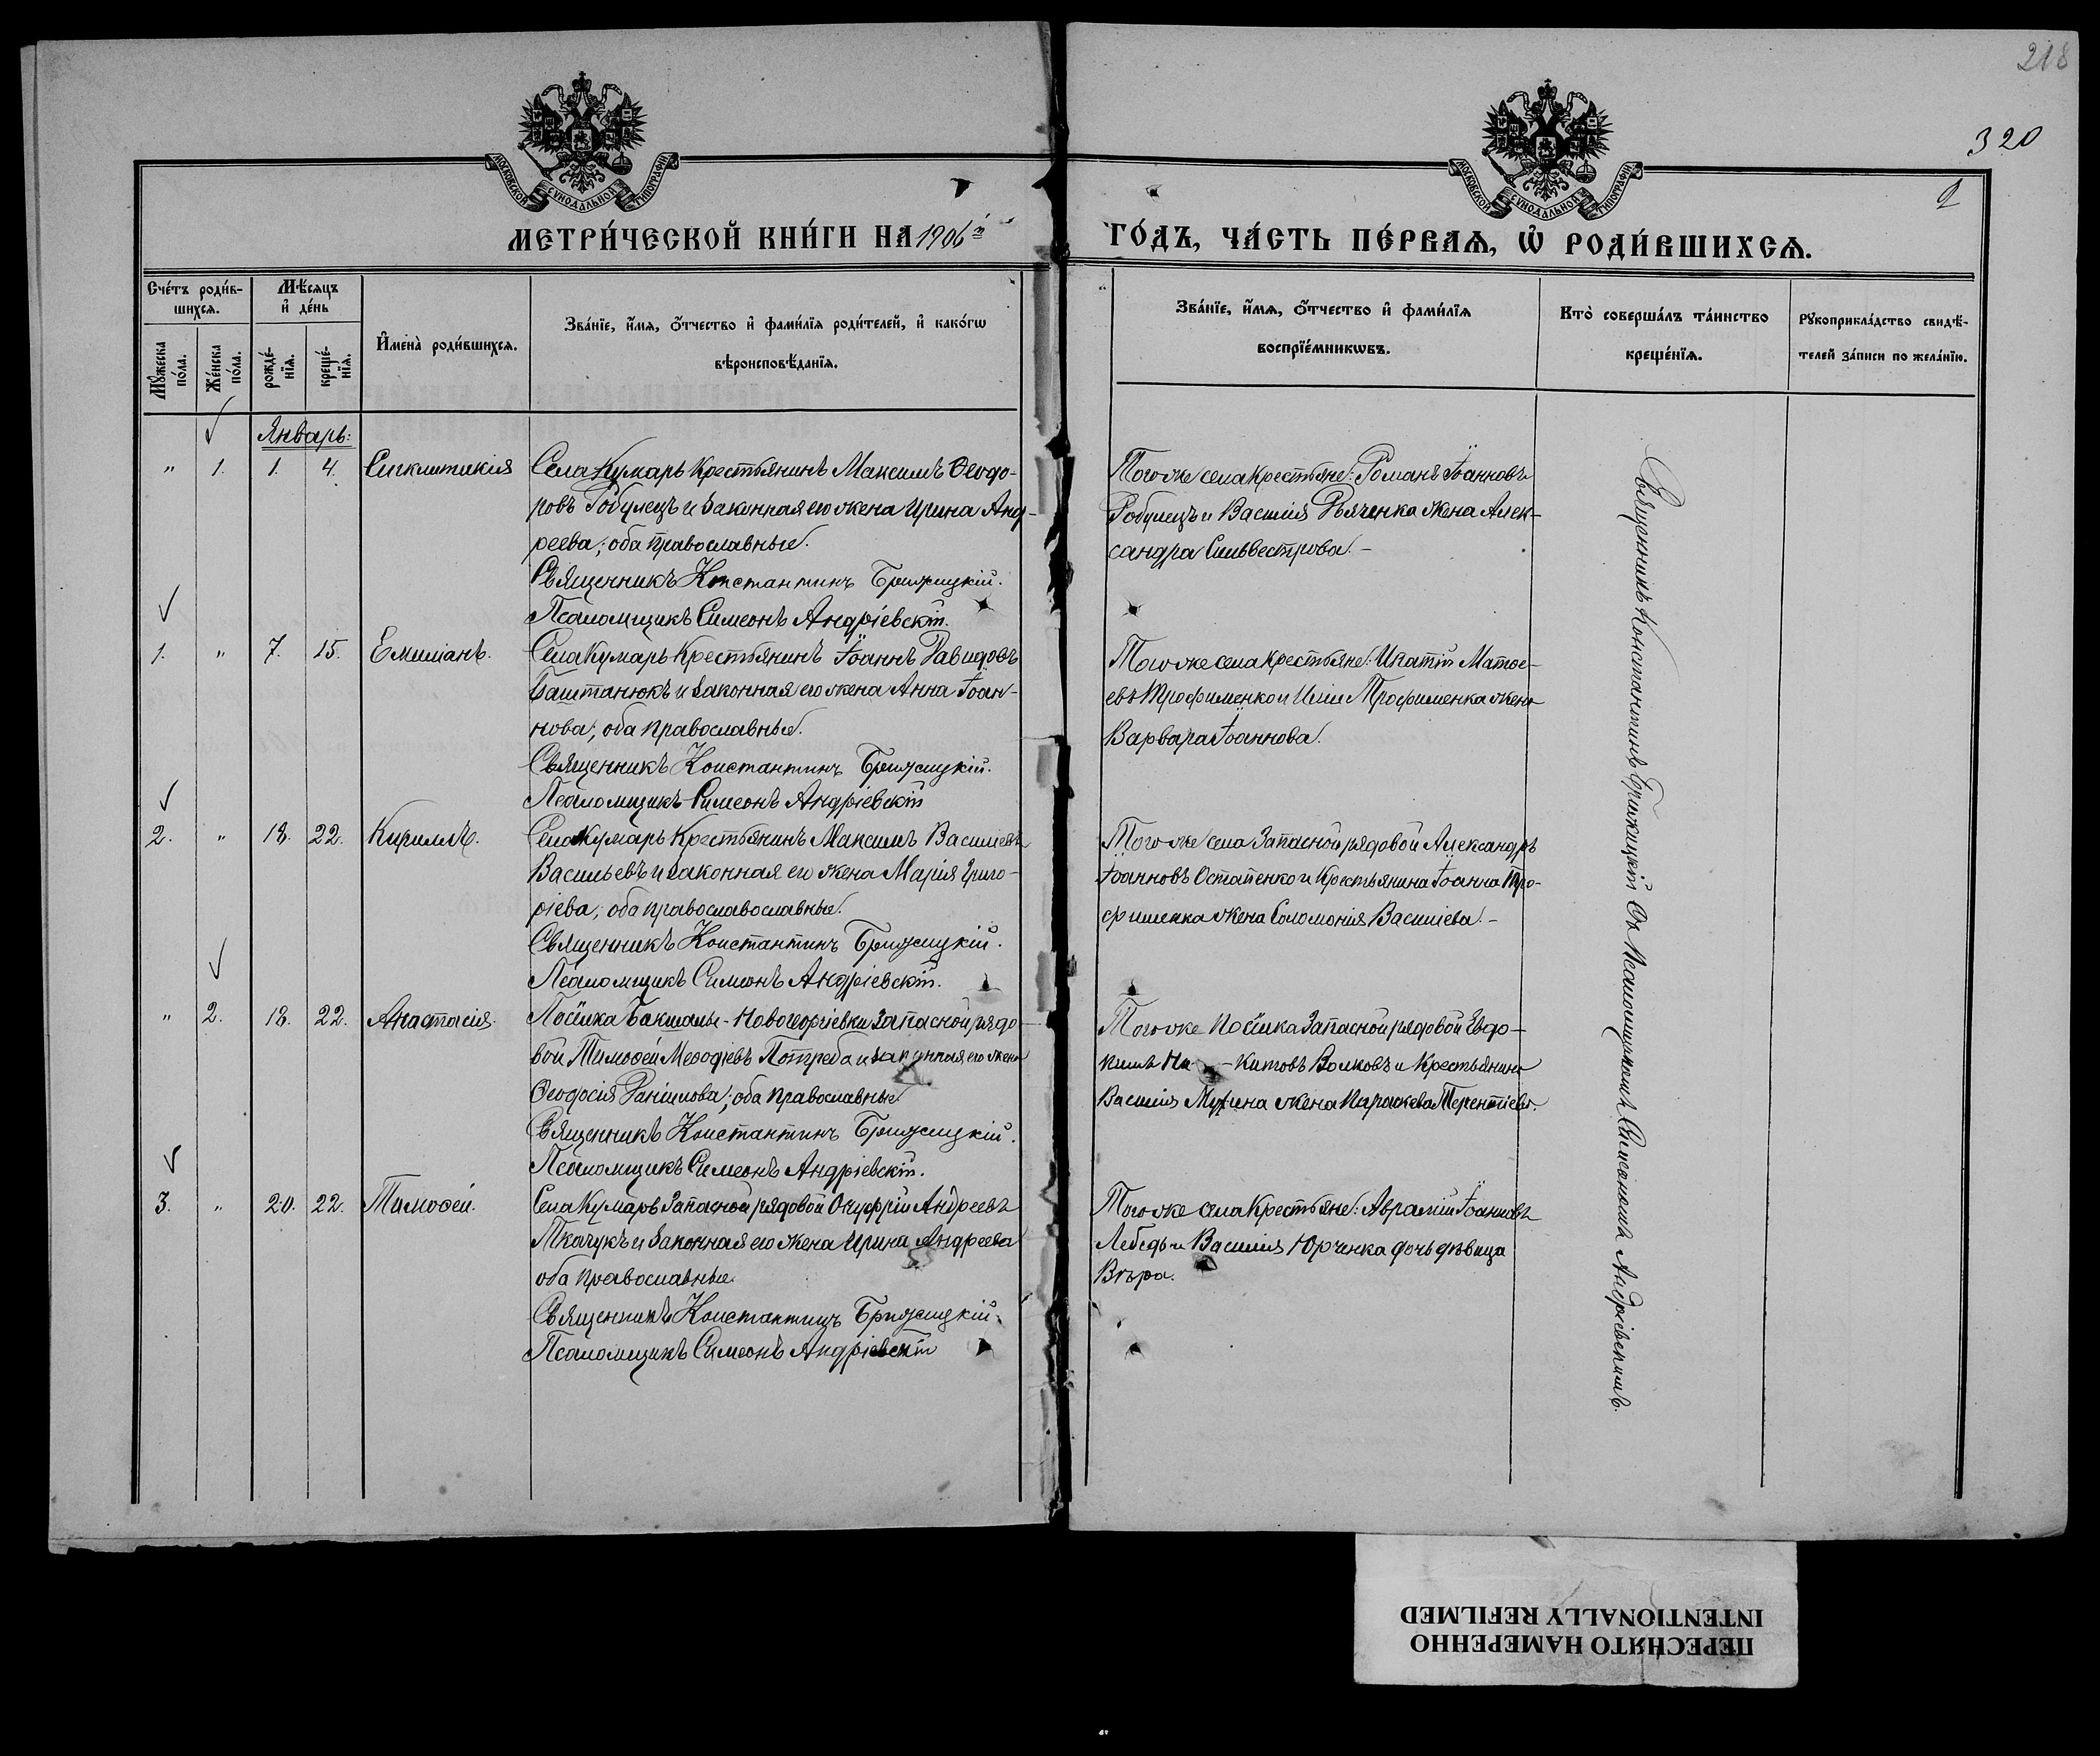 218
320
2
МОСКОВСКОЙ СѴНОДАЛЬНОЙ ТИПОГРАФІИ
МОСКОВСКОЙ СѴНОДАЛЬНОЙ ТИПОГРАФІИ
МЕТРИ́ЧЕСКОЙ КНИ́ГИ НА 1906й ГО́ДЪ, ЧА́СТЬ ПЕ́РВАѦ, Ѡ҆ РОДИ́ВШИХСѦ.
Сче́тъ роди́в-
шихсѧ.
Мѣ́сѧцъ
и҆ де́нь
Мꙋ́жеска по́ла.
Же́нска по́ла.
рожде́-
нїѧ.
креще́-
нїѧ.
И҆мена̀ роди́вшихсѧ.
Зва́нїе, и҆́мѧ, ѻ҆́тчество и҆ фами́лїѧ роди́телей, и҆ како́гѡ
вѣроисповѣ́данїѧ.
Зва́нїе, и҆́мѧ, ѻ҆́тчество и҆ фами́лїѧ
воспрїе́мникѡвъ.
Кто̀ соверша́лъ та́инство
креще́нїѧ.
Рꙋкоприкла́дство свидѣ́-
телей за́писи по жела́нїю.
Январь:
" 1. 1. 4. Синклитикія
Села Кумарь Крестьянинъ Максимъ Ѳеодо-
ровъ Робулецъ и законная его жена Ирина Анд-
реева; оба православные.
Священникъ Константинъ Брижицкій.
Псаломщикъ Симеонъ Андріевскій.
Того же села Крестьяне: Романъ Іоанновъ
Робулецъ и Василія жена Алек-
сандра Сильвестрова. –
1. " 7. 15. Емиліанъ.
Села Кумарь Крестьянинъ Іоаннъ Давидовъ
Баштанюкъ и законная его жена Анна Іоан-
нова; оба православные.
Священникъ Константинъ Брижицкій.
Псаломщикъ Симеонъ Андріевскій
Того же села Крестьяне: Ипатій Матѳе-
евъ Трофименко и Иліи Трофименка жена
Варвара Іоаннова.
2. " 18. 22. Кириллъ.
Села Кумарь Крестьянинъ Максимъ Василіевъ
Васильевъ и законная его жена Марія Григо-
ріева; оба православославные.
Священникъ Константинъ Брижицкій.
Псаломщикъ Симеонъ Андріевскій.
Того же села Запасной рядовой Александръ
Іоанновъ Остапенко и Крестьянина Іоанна Тро-
фименка жена Соломонія Василіева. –
" 2. 18. 22. Анастасія.
Посёлка Бакшалы-Новогеоргіевки Запасной рядо-
вой Тимоѳей Меѳодіевъ Потреба и законная его жена
Ѳеодосія Даніилова; оба православные
Священникъ Константинъ Брижицкій.
Псаломщикъ Симеонъ Андріевскій.
Того же посёлка Запасной рядовой Евдо-
кимъ Ни-китовъ Волковъ и Крестьянина
Василія жена Параскева Терентіева.
3. " 20. 22. Тимоѳей.
Села Кумарь Запасной рядовой Онуфрій Андреевъ
Ткачукъ и законная его жена Ирина Андреева
оба православные
Священникъ Константинъ Брижицкій.
Псаломщикъ Симеонъ Андріевскій
Того же села Крестьяне: Аврамій Іоанновъ
Лебедь и Василія Юрченка дочь дѣвица
Вѣра.
Священникъ Константинъ Брижицкій Съ Псаломщикомъ Симеономъ Андріевскимъ.
ПЕРЕСНЯТО НАМЕРЕННО
INTENTIONALLY REFILMED